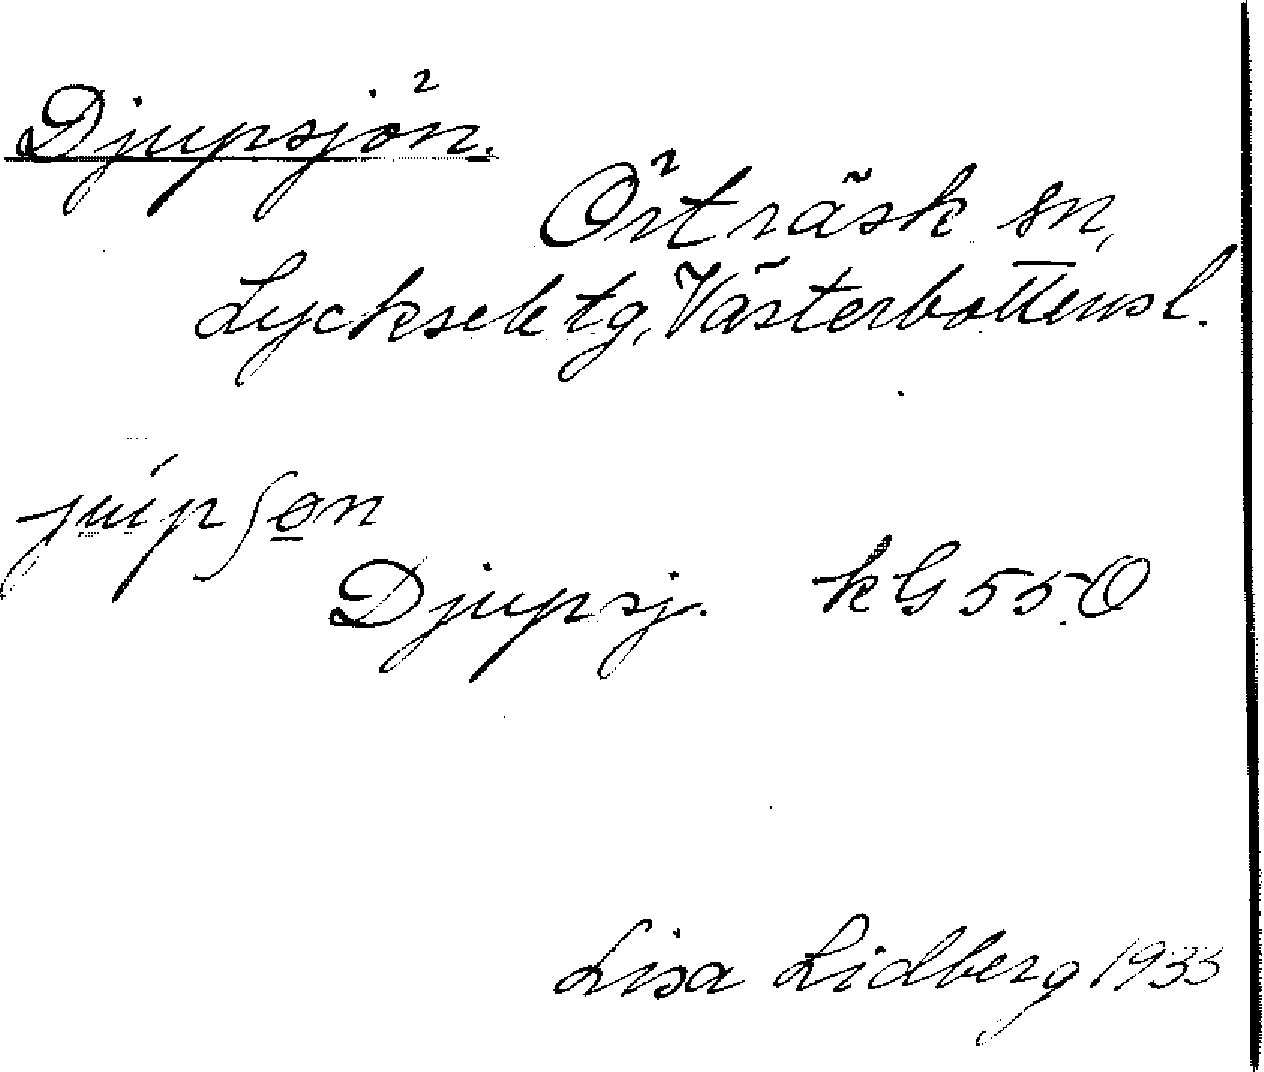 Djupsjön.
Örträsk sn,
Lycksele tg, Västerbottensl.
Djupsj. kG 550
Lisa Lidberg 1933